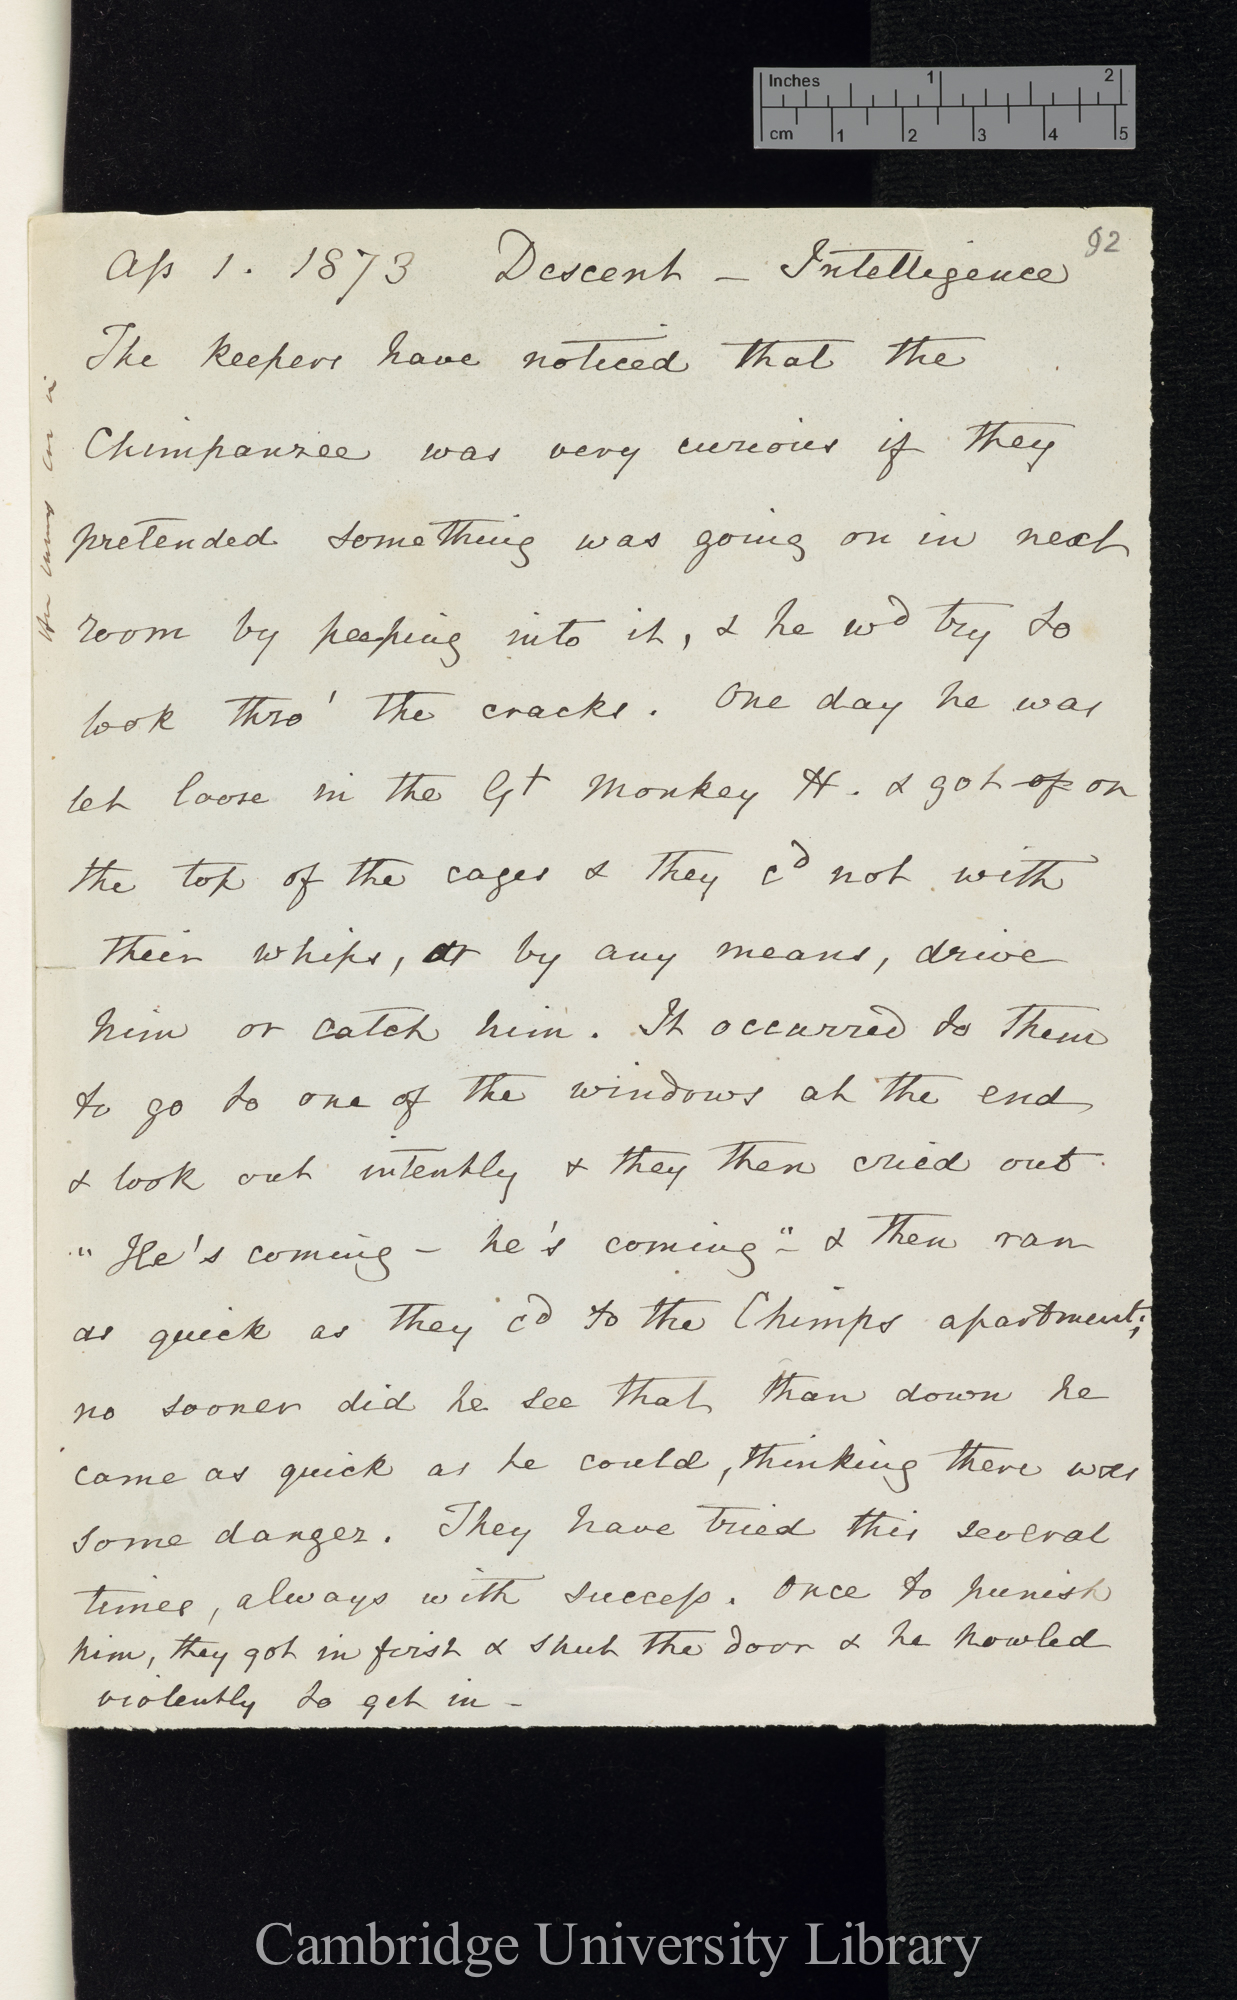 Inches 1 2
cm 1 2 3 4 5
92
Ap 1. 1873 Descent – Intelligence
The keepers have noticed that the
Chimpanzee was very curious if they
pretended something was going on in next
room by peeping into it, & he wd try to
look thro' the cracks. One day he was
let loose in the Gt Monkey H. & got of on
the top of the cages & they cd not with
their whips, or by any means, drive
him or catch him. It occurred to them
to go to one of the windows at the end
& look out intently & they then cried out
"He's coming – he's coming" – & then ran
as quick as they cd to the Chimps apartment;
no sooner did he see that than down he
came as quick as he could, thinking there was
some danger. They have tried this several
times, always with success. Once to punish
him, they got in first & shut the door & he howled
violently to get in –
Cambridge University Library